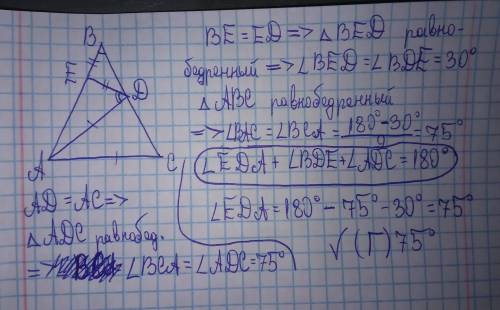 B
E
D
A
C
BE = ED => △BED равно-
бедренный => ∠BED = ∠BDE = 30°
△ABC равнобедренный
=> ∠BAC = ∠BCA = 180° - 30° / 2 = 75°
∠EDA + ∠BDE + ∠ADC = 180°
∠EDA = 180° - 75° - 30° = 75°
√ (Г) 75°
AD = AC =>
△ADC равнобед.
=> ∠BCA = ∠ADC = 75°